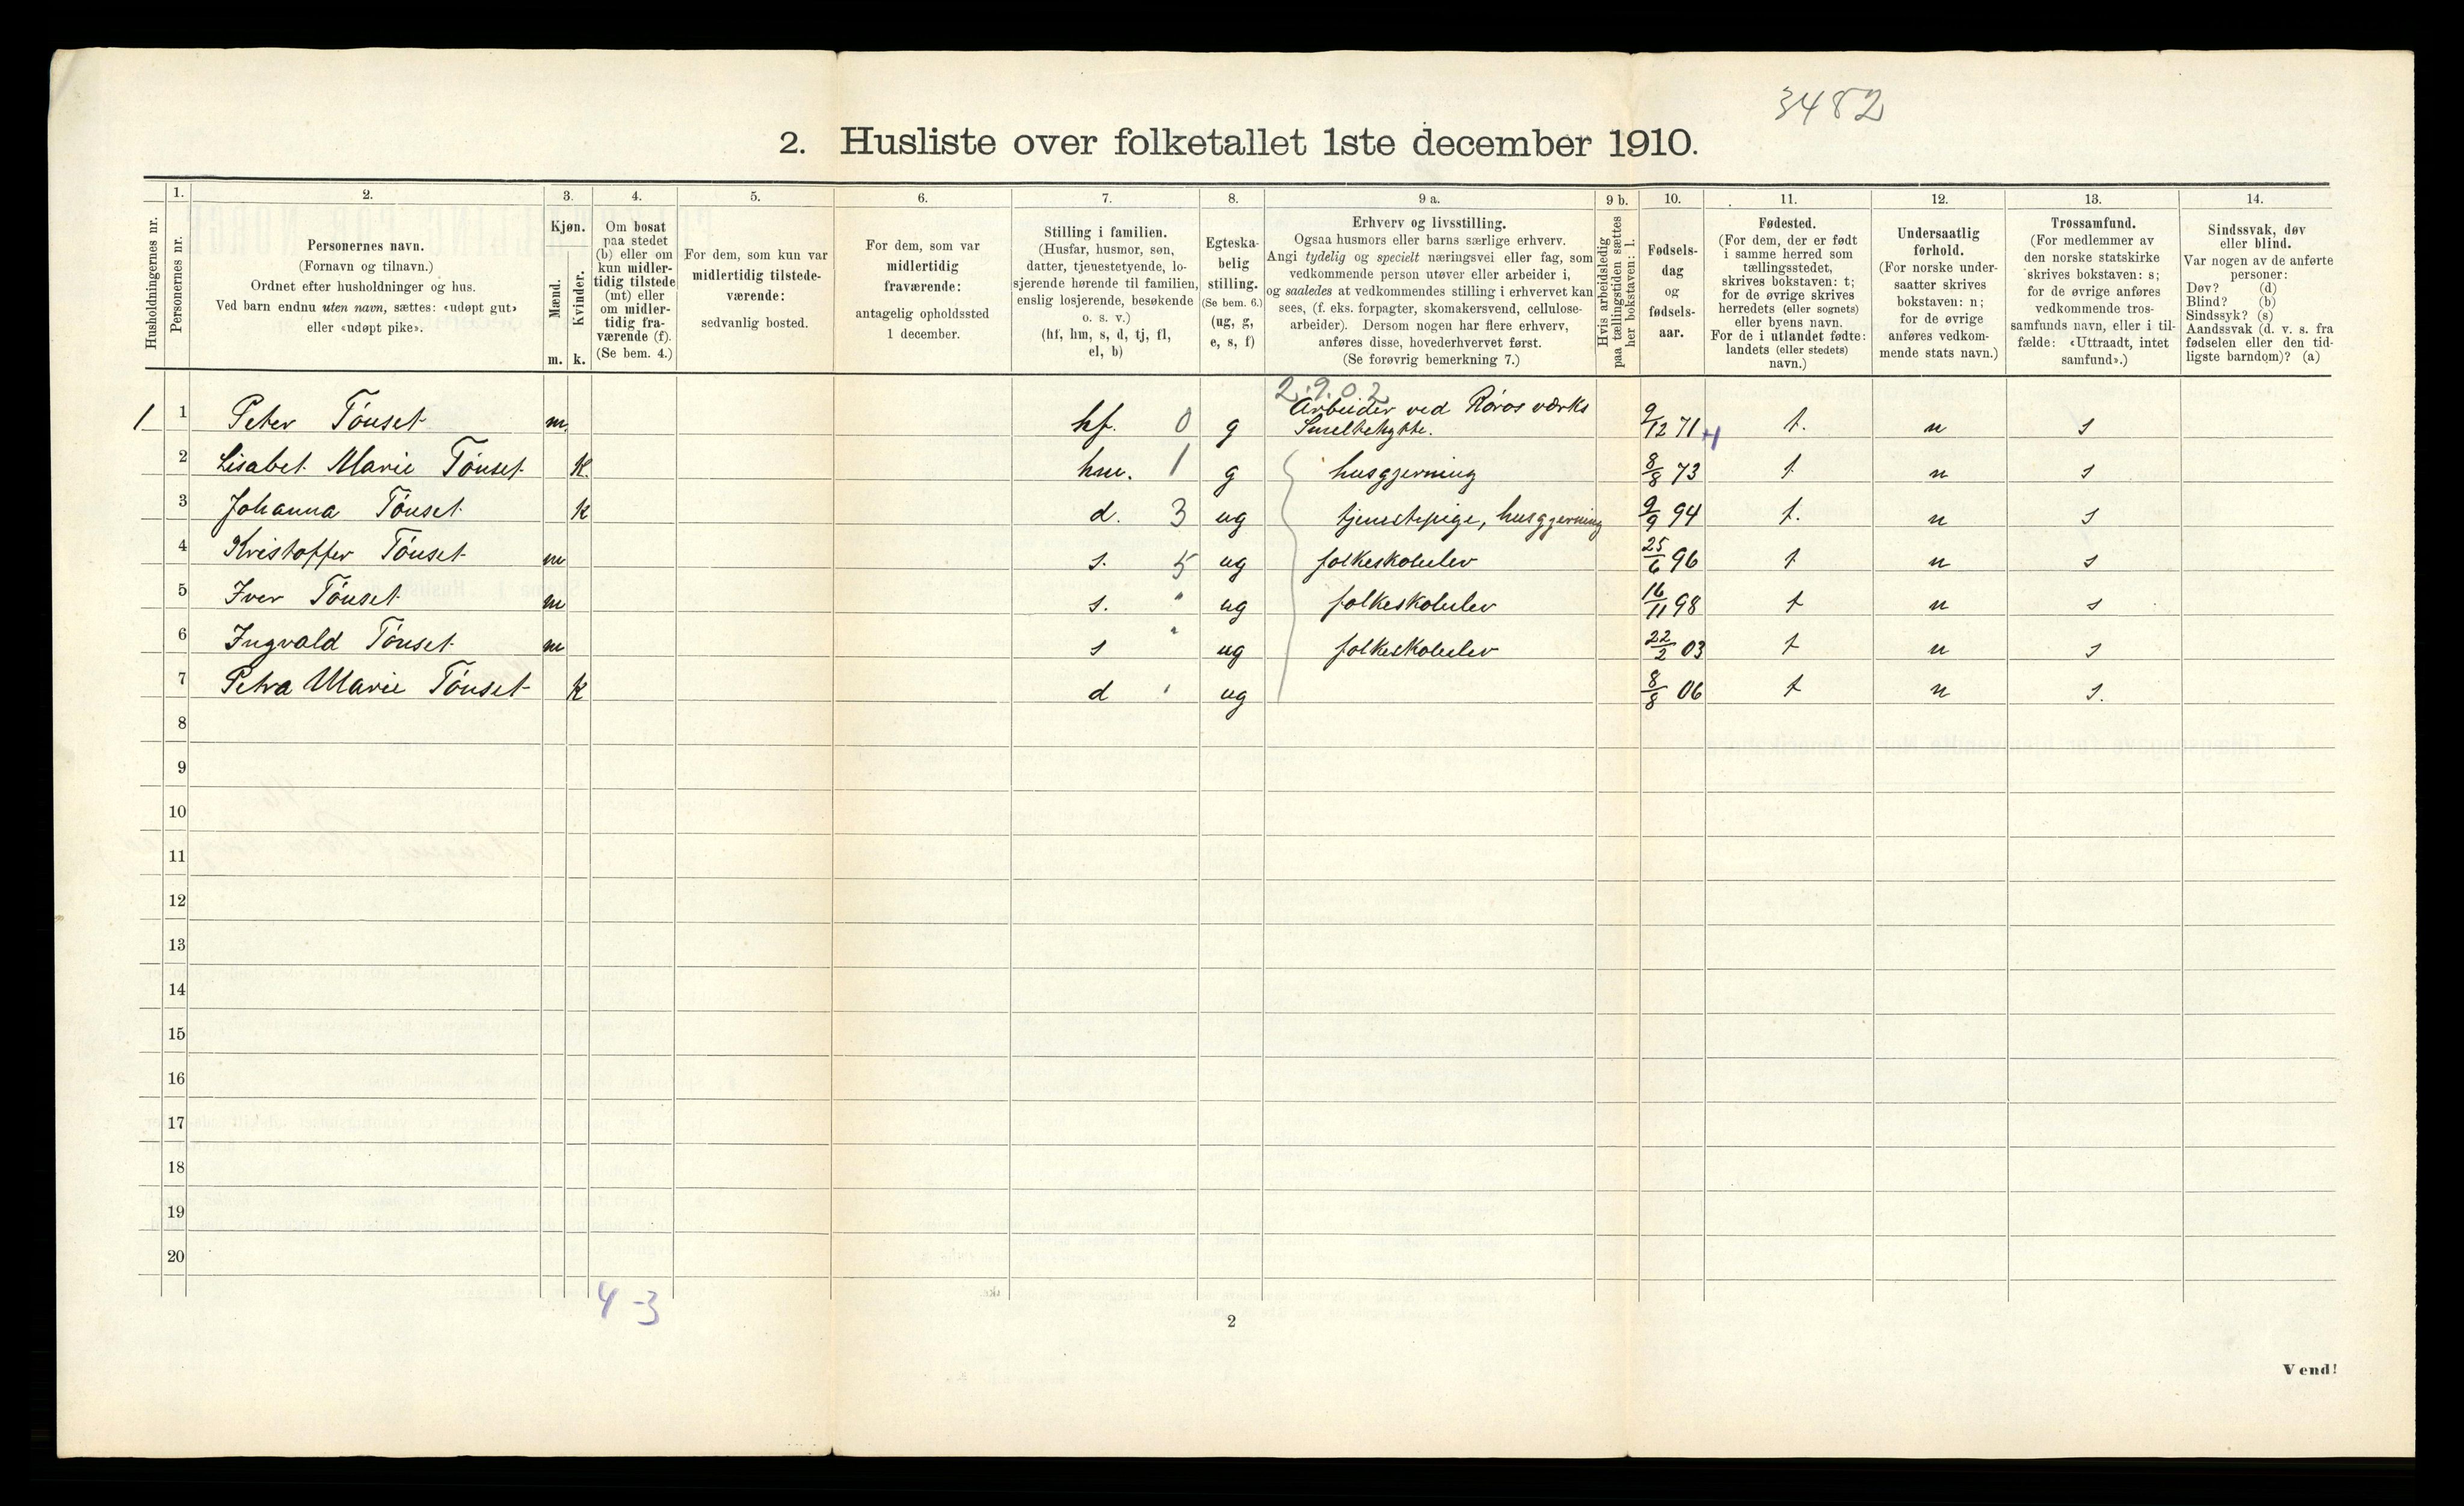 3482
2. Husliste over folketallet 1ste december 1910.
Husholdningernes nr.
1.
Personernes nr.
2.
Personernes navn.
(Fornavn og tilnavn.)
Ordnet efter husholdninger og hus.
Ved barn endnu uten navn, sættes: «udøpt gut»
eller «udøpt pike».
3.
Kjøn.
Mænd.
Kvinder.
m. k.
4.
Om bosat
paa stedet
(b) eller om
kun midler-
tidig tilstede
(mt) eller
om midler-
tidig fra-
værende (f).
(Se bem. 4.)
5.
For dem, som kun var
midlertidig tilstede-
værende:
sedvanlig bosted.
6.
For dem, som var
midlertidig
fraværende:
antagelig opholdssted
1 december.
7.
Stilling i familien.
(Husfar, husmor, søn,
datter, tjenestetyende, lo-
sjerende hørende til familien,
enslig losjerende, besøkende
o. s. v.)
(hf, hm, s, d, tj, fl,
el, b)
8.
Egteska-
belig
stilling.
(Se bem. 6.)
(ug, g,
e, s, f)
9 a.
Erhverv og livsstilling.
Ogsaa husmors eller barns særlige erhverv.
Angi tydelig og specielt næringsvei eller fag, som
vedkommende person utøver eller arbeider i,
og saaledes at vedkommendes stilling i erhvervet kan
sees, (f. eks. forpagter, skomakersvend, cellulose-
arbeider). Dersom nogen har flere erhverv,
anføres disse, hovederhvervet først.
(Se forøvrig bemerkning 7.)
9 b.
Hvis arbeidsledig
paa tællingstiden sættes
her bokstaven: l.
10.
Fødsels-
dag
og
fødsels-
aar.
11.
Fødested.
(For dem, der er født
i samme herred som
tællingsstedet,
skrives bokstaven: t;
for de øvrige skrives
herredets (eller sognets)
eller byens navn.
For de i utlandet fødte:
landets (eller stedets)
navn.)
12.
Undersaatlig
forhold.
(For norske under-
saatter skrives
bokstaven: n;
for de øvrige
anføres vedkom-
mende stats navn.)
13.
Trossamfund.
(For medlemmer av
den norske statskirke
skrives bokstaven: s;
for de øvrige anføres
vedkommende tros-
samfunds navn, eller i til-
fælde: «Uttraadt, intet
samfund».)
14.
Sindssvak, døv
eller blind.
Var nogen av de anførte
personer:
Døv? (d)
Blind? (b)
Sindssyk? (s)
Aandssvak (d. v. s. fra
fødselen eller den tid-
ligste barndom)? (a)
2.9.02
1 1 Peter Tønset m. hf. 0 g Arbeider ved Røros værks
Smeltehytte. 9/12 71 t. n s
2 Lisabet Marie Tønset k. hm. 1 g husgjerning 8/8 73 t n s
3 Johanna Tønset k d. 3 ug tjenestepige, husgjerning 9/9 94 t. n s
4 Kristoffer Tønset m s. 5 ug folkeskoleelev 25/6 96 t n s
5 Iver Tønset m s. " ug folkeskoleelev 16/11 98 t n s
6 Ingvald Tønset m s " ug folkeskoleelev 22/2 03 t n s
7 Petra Marie Tønset k d " ug 8/8 06 t n s.
8
9
10
11
12
13
14
15
16
17
18
19
20
4-3
2
Vend!